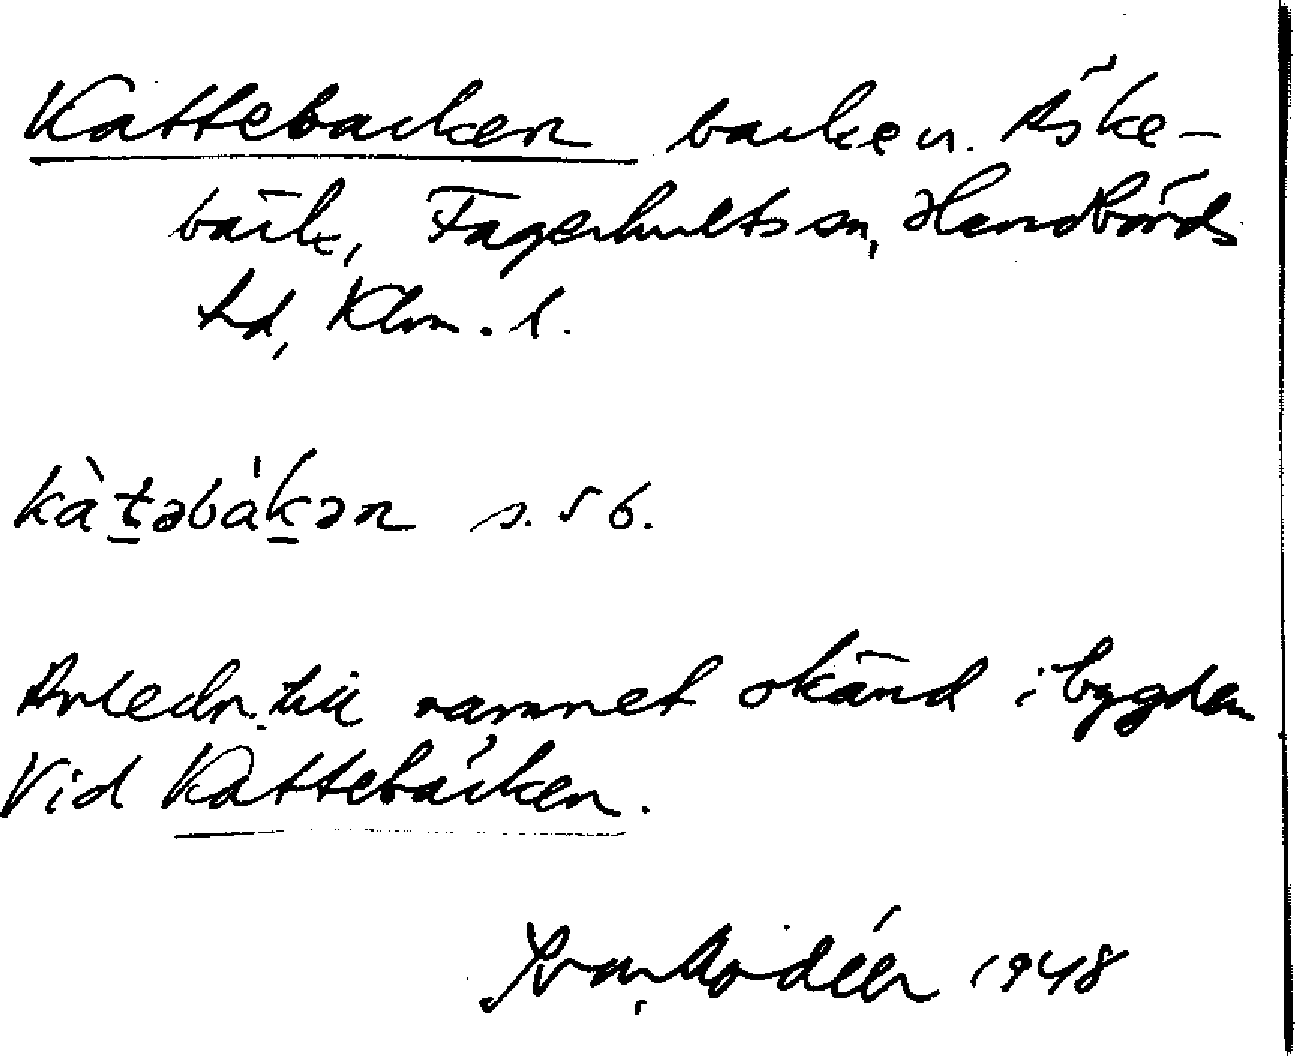 Kattebacken backe n. Äske-
bäck, Fagerhults sn, Handbörds
hd, Klm. l.
kàt̠əbàk̠ən s. 56.
Anledn. till namnet okänd i bygden
Vid Kattebäcken.
Ivar Modéer 1948